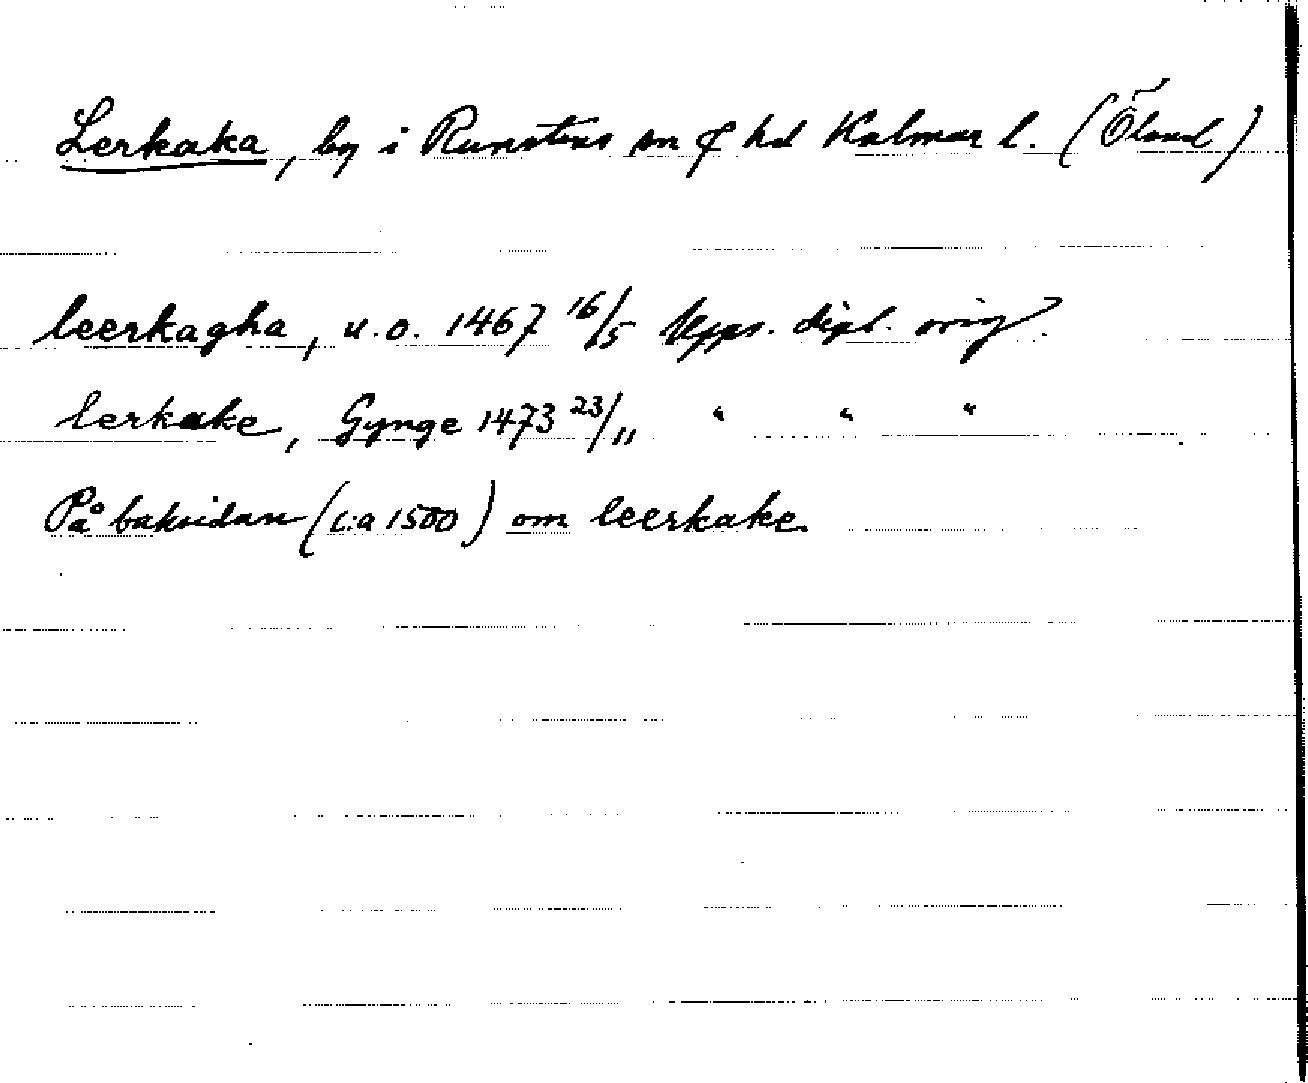 Lerkaka, by i Runstens sn o hd Kalmar l. (Öland)
leerkagha, u.o. 1467 16/5 Upps. dipl. orig.
lerkake, Gynge 1473 23/11 " " "
På baksidan (c:a 1500) om leerkake.